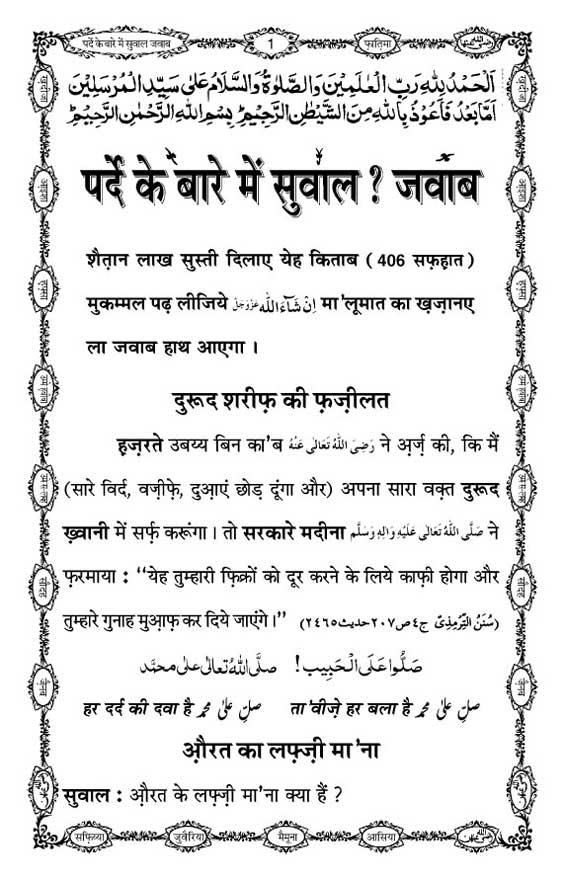 पर्दे के बारे में सुवाल जवाब
1
फ़ातिमा
اَلْحَمْدُ لِلّٰهِ رَبِّ الْعٰلَمِيْنَ وَالصَّلٰوةُ وَالسَّلَامُ عَلٰى سَيِّدِ الْمُرْسَلِيْنَ
اَمَّا بَعْدُ فَاَعُوْذُ بِاللّٰهِ مِنَ الشَّيْطٰنِ الرَّجِيْمِ ؕ بِسْمِ اللّٰهِ الرَّحْمٰنِ الرَّحِيْمِ ؕ
पर्दे के बारे में सुवाल ? जवाब
शैत़ान लाख सुस्ती दिलाए येह किताब ( 406 सफ़ह़ात )
मुकम्मल पढ़ लीजिये اِنْ شَآءَاللّٰه عَزَّوَجَلَّ मा'लूमात का ख़ज़ानए
ला जवाब हाथ आएगा ।
दुरूद शरीफ़ की फ़ज़ीलत
ह़ज़रते उबय्य बिन का'ब رَضِىَ اللّٰهُ تَعَالٰى عَنْهُ ने अ़र्ज़ की, कि मैं
(सारे विर्द, वज़ीफ़े, दुआ़एं छोड़ दूंगा और) अपना सारा वक़्त दुरूद
ख़्वानी में सर्फ़ करूंगा । तो सरकारे मदीना صَلَّى اللّٰهُ تَعَالٰى عَلَيْهِ وَاٰلِهٖ وَسَلَّم ने
फ़रमाया : ‘‘येह तुम्हारी फ़िक्रों को दूर करने के लिये काफ़ी होगा और
तुम्हारे गुनाह मुआ़फ़ कर दिये जाएंगे ।’’ (سُنَنُ التِّرْمِذِىّ ج٤ ص٢٠٧ حديث٢٤٦٥)
صَلُّوْا عَلَى الْحَبِيْب! صلَّى اللّٰهُ تعالٰى علٰى محمَّد
हर दर्द की दवा है صلِّ علٰى محمد ता'वीज़े हर बला है صلِّ علٰى محمد
औ़रत का लफ़्ज़ी मा'ना
सुवाल : औ़रत के लफ़्ज़ी मा'ना क्या हैं ?
सफ़िय्या
जुवैरिया
मैमूना
आसिया